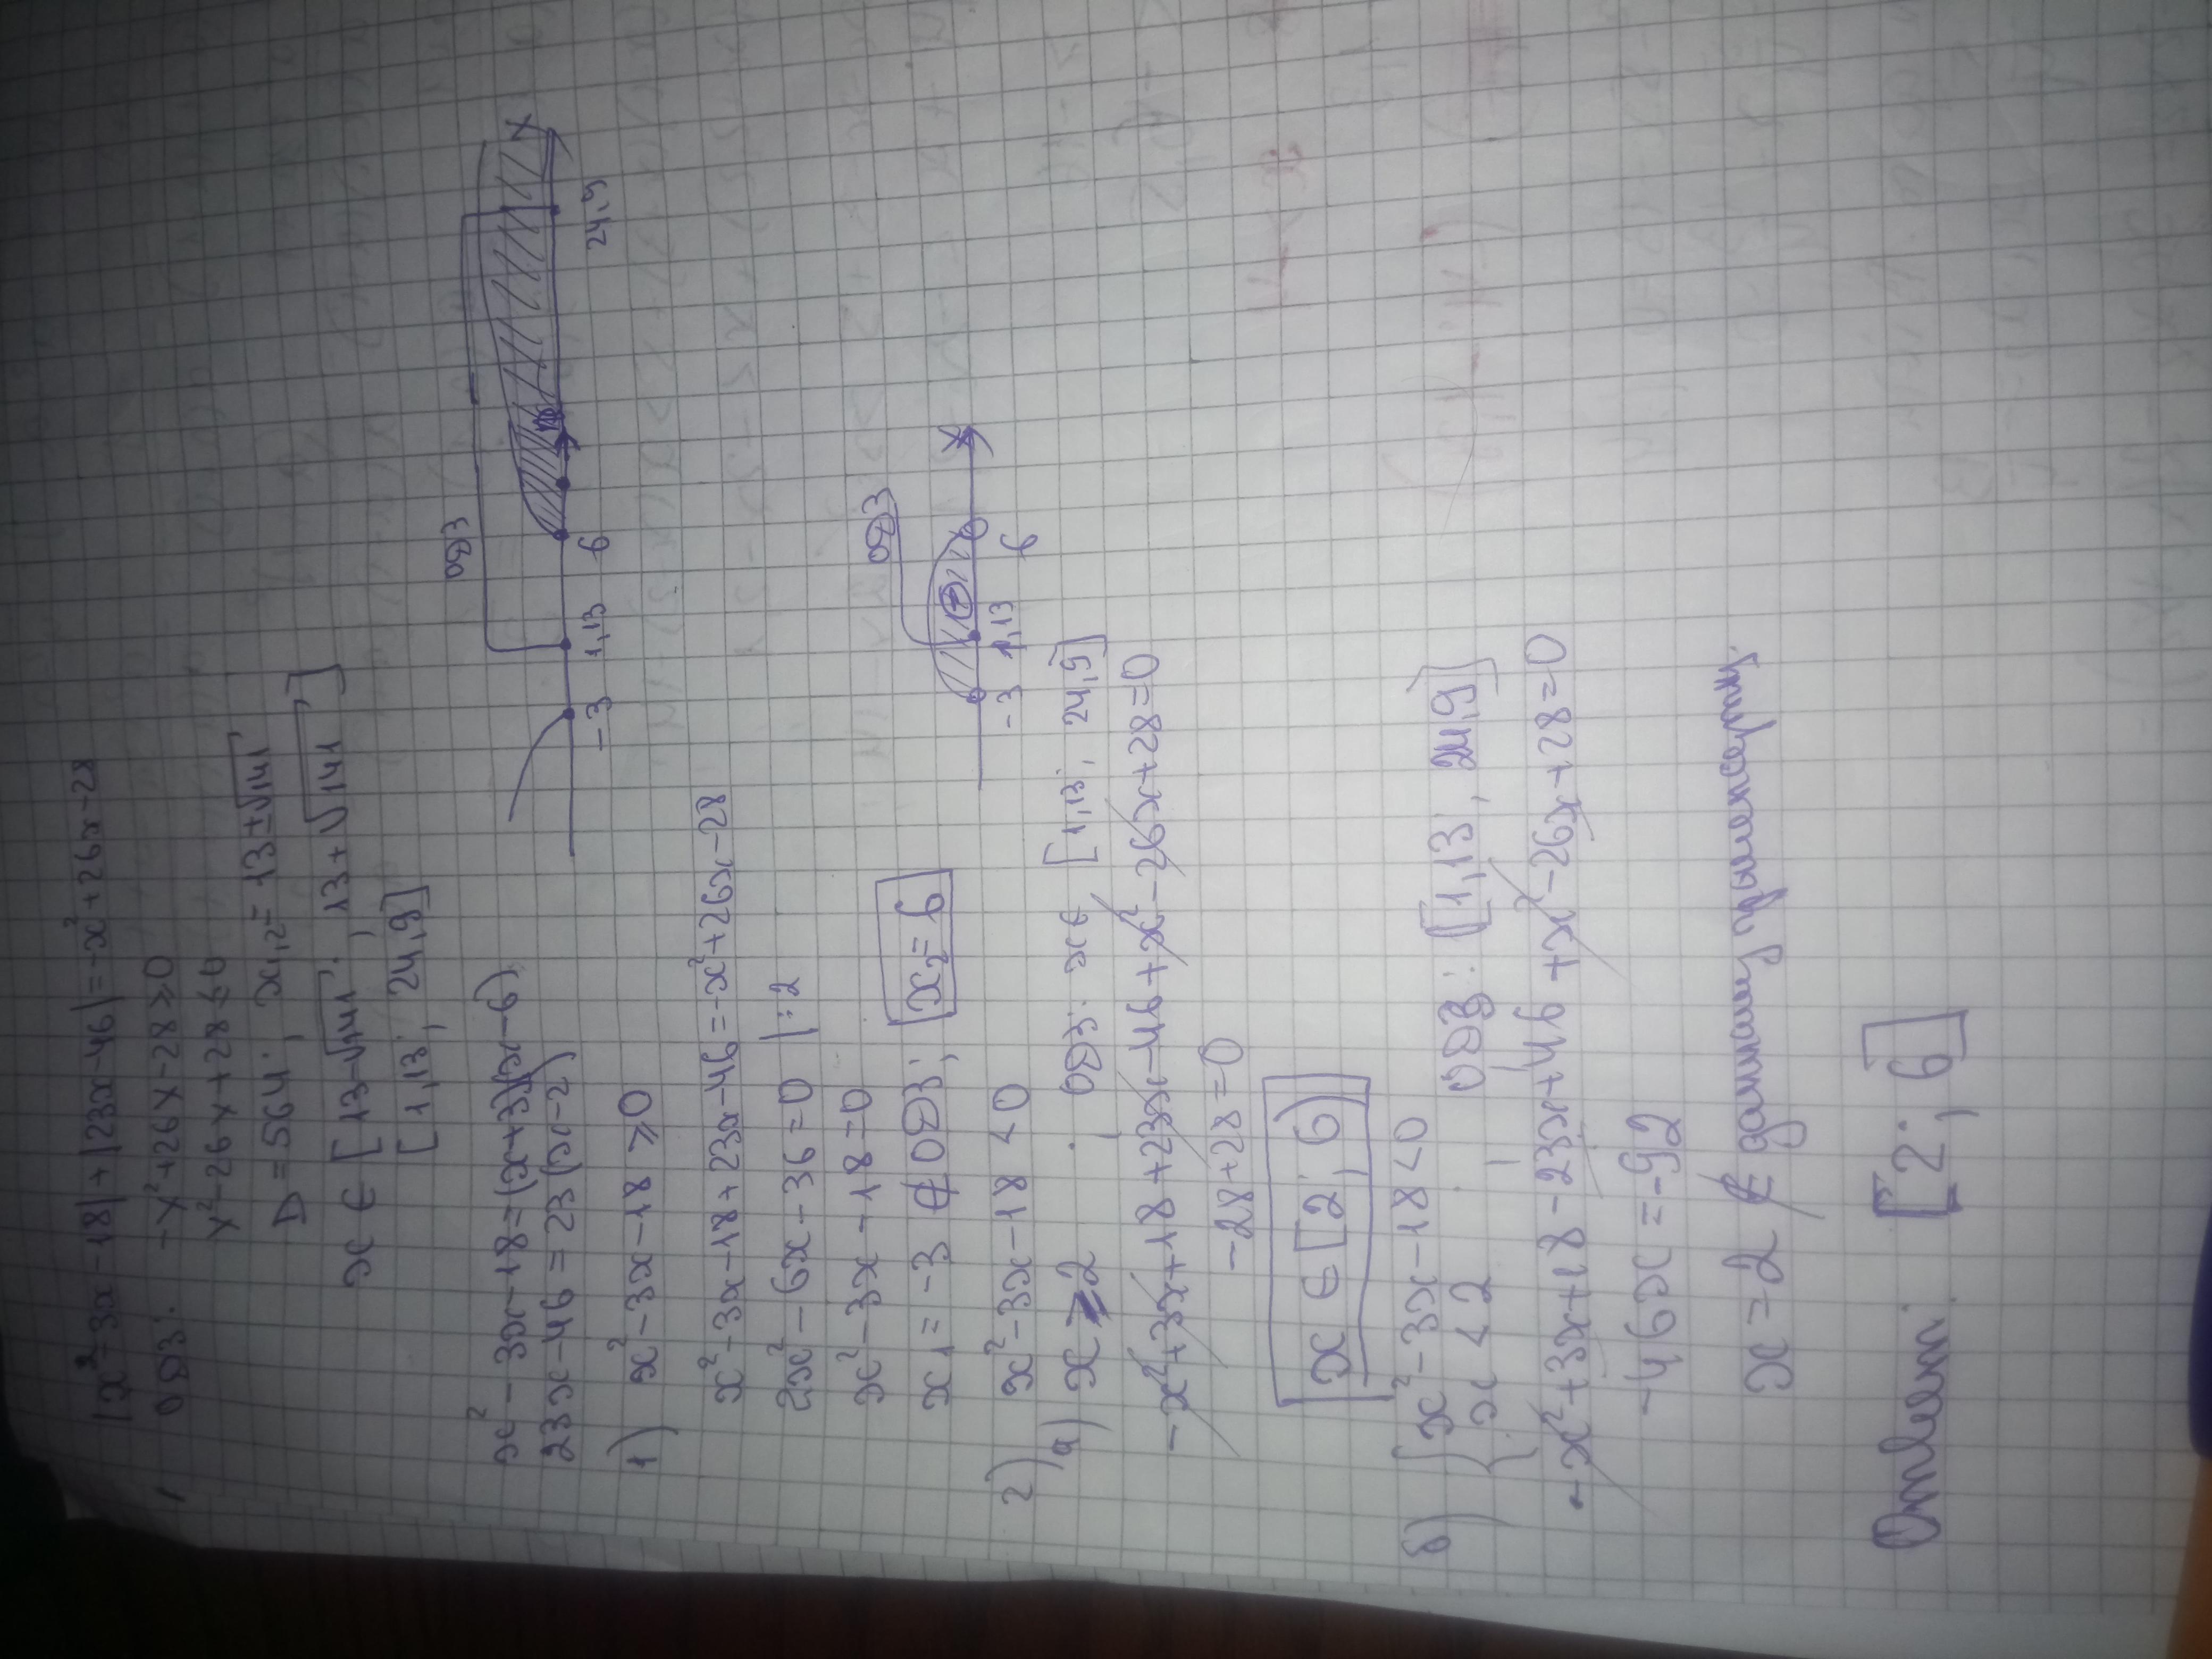 |x²-3x-18|+|23x-46|=-x²+26x-28
ОДЗ: -x²+26x-28≥0
x²-26x+28≤0
D=564; x₁,₂=13±√141
x∈[13-√141; 13+√141]
[1,13; 24,9]
ОДЗ
x²-3x-18=(x+3)(x-6)
23x-46=23(x-2)
-3 1,13 6 24,9 x
1) x²-3x-18≥0
x²-3x-18+23x-46=-x²+26x-28
2x²-6x-36=0 |:2
x²-3x-18=0
x₁=-3 ∉ ОДЗ; x₂=6
ОДЗ
-3 1,13 6 x
2) x²-3x-18<0
а) x≥2 ОДЗ: x∈ [1,13; 24,9]
-x²+3x+18+23x-46+x²-26x+28=0
-28+28=0
x∈[2; 6)
б) { x²-3x-18<0
x<2 ОДЗ: [1,13; 24,9]
-x²+3x+18-23x+46+x²-26x+28=0
-46x=-92
x=2 ∉ данному промежутку.
Ответ: [2; 6]